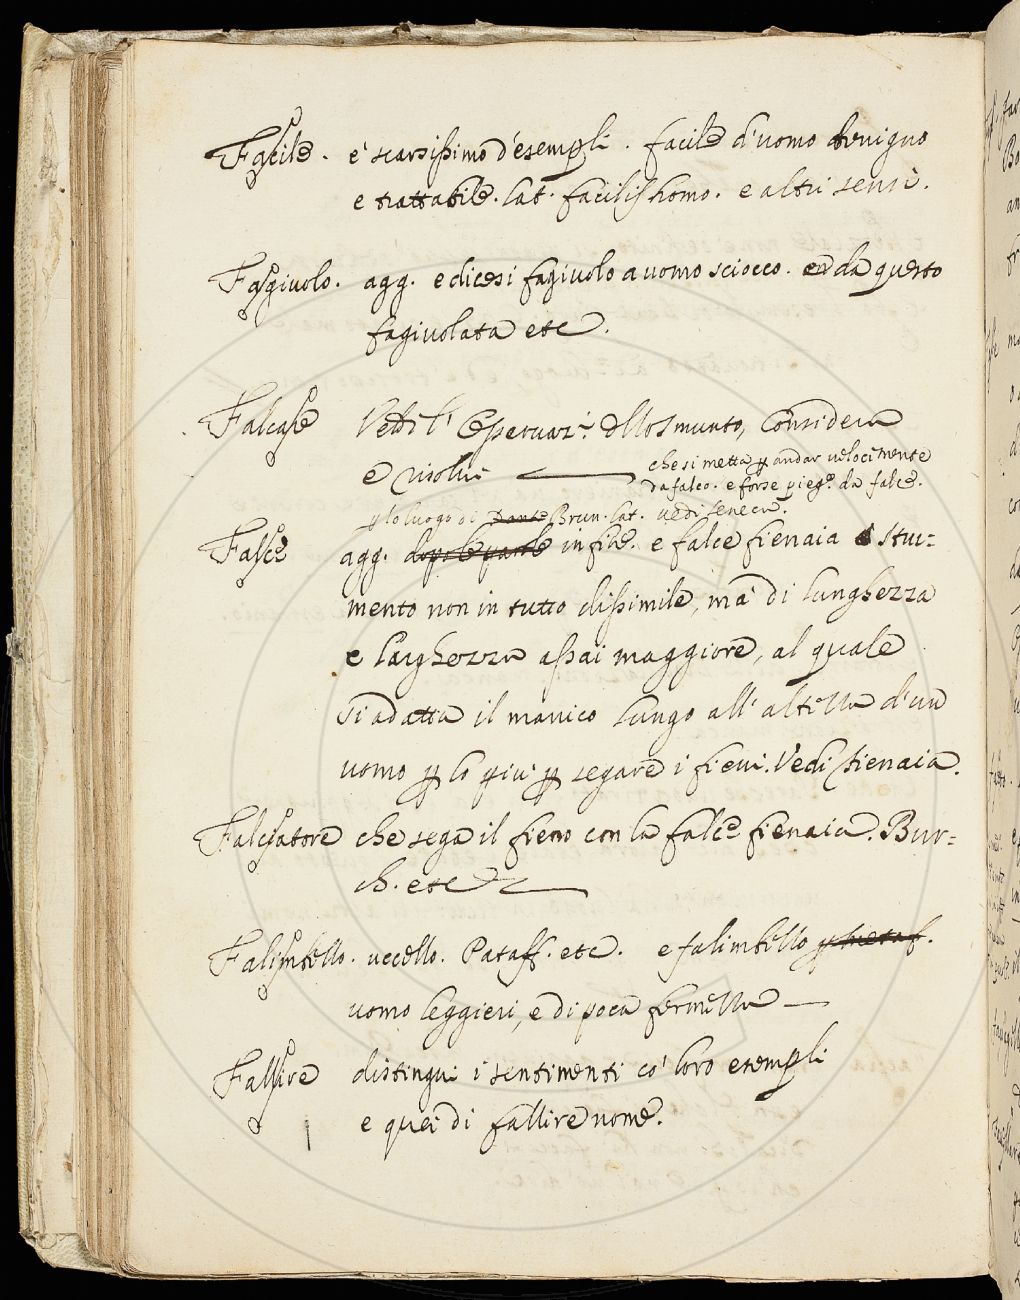 Facile. è scarsissimo d'esempli. facile d'uomo benigno
e trattabile. lat. facilis homo. e altri sensi.
Fagivolo. agg. e dicesi fagivolo a uomo sciocco. e da questo
fagivolata etc.
Falcare Vedi l' considera
e risolvi che si metta p andar velocemente
da falco. e forse pieg. da falce.
p lo luogo di Dante Brun. lat. vedi
Falce agg. dopo le parole in fine. e falce fienaia è stru=
mento non in tutto dissimile, mà di lunghezza
e larghezza assai maggiore, al quale
si adatta il manico lungo all'altezza d'un
uomo p lo più p segare i fieni. Vedi fienaia.
Falciatore che sega il fieno con la falce fienaia. Bur=
ch. etc
Falimbello. uccello. Pataff. etc. e falimbello p metaf.
uomo leggieri, e di poca fermezza
Fallire distingui i sentimenti co' loro esempli
e quei di fallire nome.